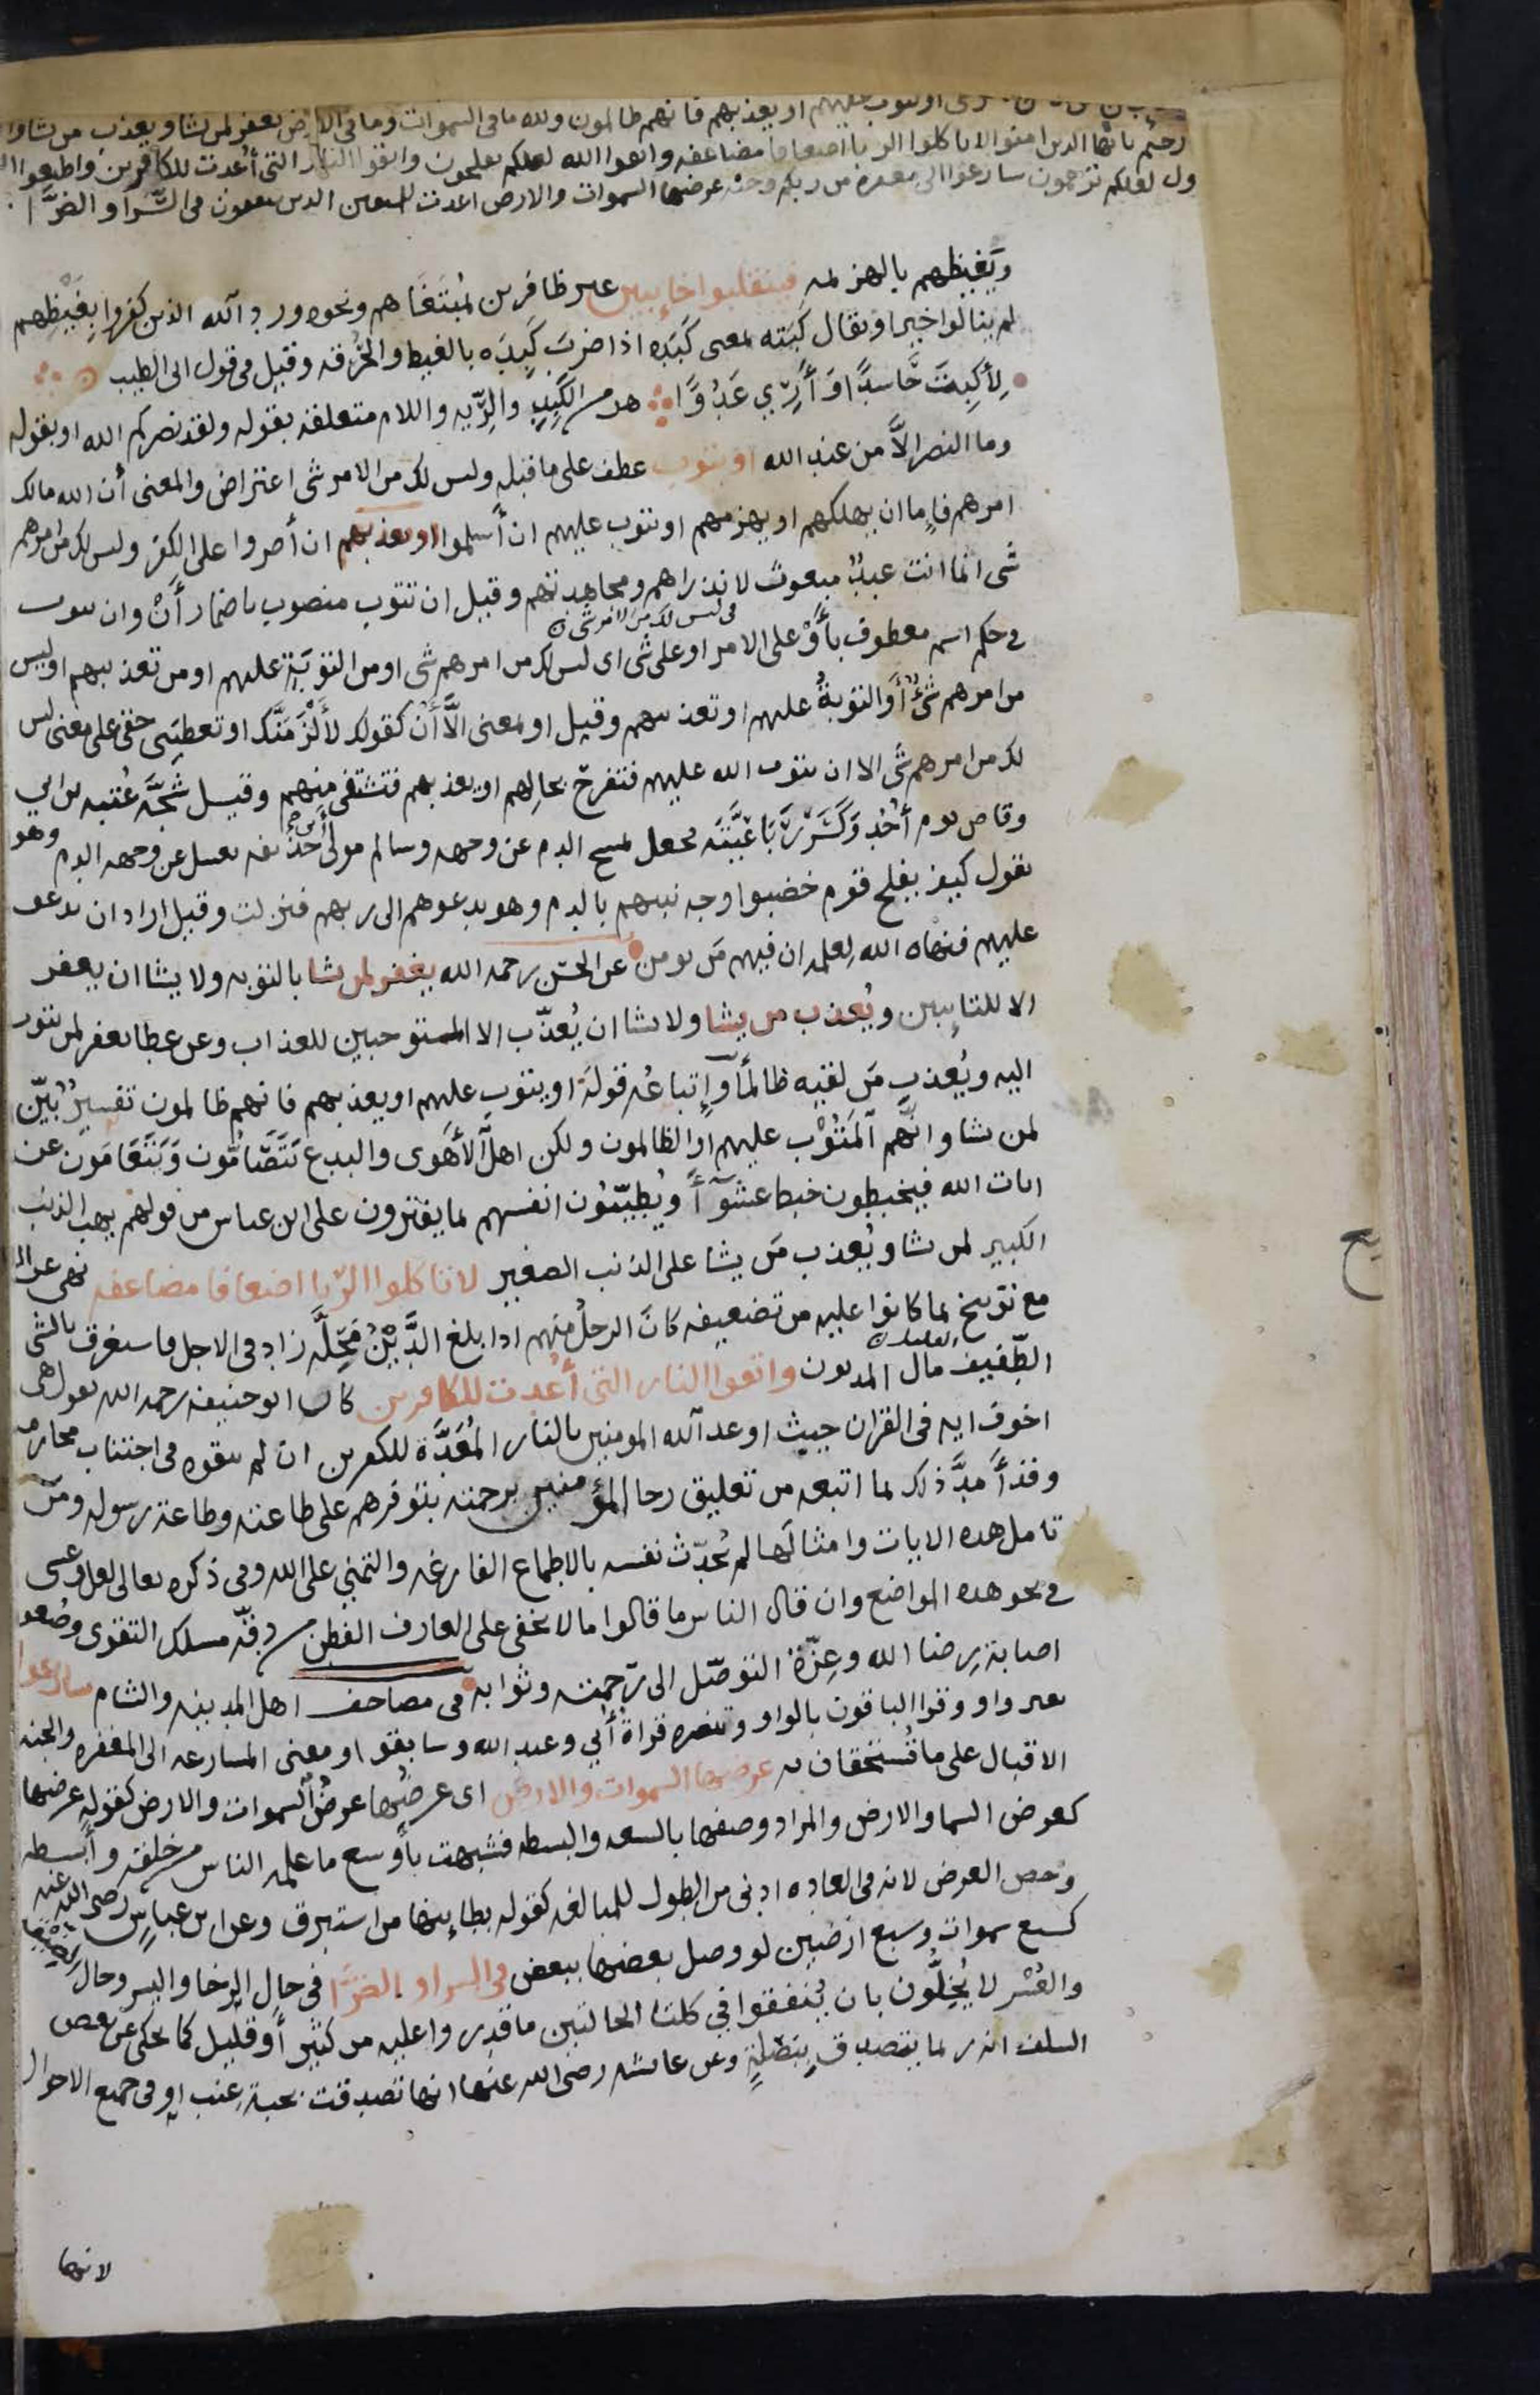 او يتوب عليهم او يعذبهم فانهم ظالمون ولله ما فى السموات وما فى الارض يغفر لمن يشا ويعذب من يشا وا
رحيم يا ايها الذين امنوا لا تاكلوا الربا اضعافا مضاعفه واتقوا الله لعلكم تفلحون واتقوا النار التى أعدت للكافرين واطيعوا ال
ول لعلكم ترحمون سارعوا الى مغفره من ربكم وجنه عرضها السموات والارض اعدت للمتقين الذين ينفقون فى السَّرا والضرَّا
ويَغيظهم بالهزيمه فينقلبوا خايبين غير ظافرين بمُبتَغَاهم ونحوه ورد الله الذين كفروا بِغَيْظِهم
لم ينالوا خيرا ويقال كَبَته بمعى كَبَدَه اذا ضرب كَبِدَه بالغيط والحُرقه وقيل فى قول ابى الطيب
لأَكبِتَ حَاسدًا وَأَرِي عَدُوًّا هو من الكَبِد والرِّيه واللام متعلقه بقوله ولقد نصركم الله او بقوله
وما النصر الاَّ من عند الله او يتوب عطف على ما قبله وليس لك من الامر شى اعتراض والمعنى أن الله مالك
امرهم فاما ان يهلكهم او يهزمهم او يتوب عليهم ان أسلموا او يعذبهم ان أصروا على الكفر وليس لك من امرهم
شى انما انت عبدٌ مبعوث لانذارهم ومجاهدتهم وقيل ان يتوب منصوب باضمار أَنْ وان يتوب
فى حكم اسم معطوف بأَوْ على الامر او على شى اى ليس لك من امرهم شى او من التوبَةِ عليهم او من تعذيبهم او ليس
فى ليس لك من الامر شى
من امرهم شىٌ أو التوبةُ عليهم او تعذيبهم وقيل او بمعنى الاَّ أَنْ كقولك لأَلْزَمَنَّك او تعطيَنى حقى على معنى ليس
لك من امرهم شى الا ان يتوب الله عليهم فتفرحَ بحالهم او يعذبهم فتتشفى منهم وقيل شَجَّه عُتبه بن ابي
وقاص يوم أُحُد وَكَسَرَ رَبَاعِيَّتَه فجعل يمسح الدم عن وجهه وسالم مولى أبى حذيفه يغسل عن وجهه الدم وهو
يقول كيف يفلح قوم خضبوا وجه نبيهم بالدم وهو يدعوهم الى ربهم فنزلت وقيل اراد ان يدعو
عليهم فنهاه الله لِعلمه ان فيهم مَن يومن عن الحسن رحمه الله يغفر لمن يشا بالتوبه ولا يشا ان يغفر
الا للتايبين ويُعذب من يشا ولا يشا ان يُعذّب الا المستوجبين للعذاب وعن عطا يغفر لمن يتوب
اليه ويُعذب مَن لقيه ظالمًا وإتباعُه قولَه او يتوب عليهم او يعذبهم فانهم ظالمون تفسيرٌ بَيِّن
لمن يشا وانَّهم المَتُوْب عليهم او الظالمون ولكن اهل الأهَوى والبدع يَتَصَّامُّون وَيَتَعَامَون عن
ايات الله فيخبطون خبط عشوآ ويُطيِّبُون انفسهم بما يفترون على ابن عباس من قولهم يهب الذنب
الكبير لمن يشا ويُعذب مَن يشا على الذنب الصغير لا تاكلوا الرّبا اضعافا مضاعفه نهى عن الر
مع توبيخ بما كانوا عليه من تضعيفه كانَ الرجلُ منهم اذا بلغ الدَّيْنُ مَحِلَّه زاد فى الاجل فاستغرق بالشى
الطّفيف مال المديون واتقوا النار التى أُعدت للكافرين كان ابو حنيفه رحمه الله يقول هى
اخوف ايه فى القران حيث اوعد الله المومنين بالنار المُعَدَّة للكفرين ان لم يتقوه فى اجتناب محارمه
وقد أَمدَّ ذلك بما اتبعه من تعليق رجا المؤمنين برحمته بتوفرهم على طاعته وطاعة رسوله ومَن
تامل هده الايات وامثالَها لم يُحدِّث نفسه بالاطماع الفارغه والتمنى على الله وفى ذكره تعالى لعل وعسى
فى نحو هده المواضع وان قال الناس ما قالوا ما لا يخفى على العارف الفطِن من دِقَّه مسلك التقوى وصُعوبه
اصابة رِضا الله وعِزّة التوصّل الى رَحمته وثوابه فى مصاحف اهل المدينه والشام سارعوا
بغير واو وقرا الباقون بالواو وتنصره قراةُ أُبي وعبد الله وسابقوا ومعنى المسارعه الى المغفره والجنه
الاقبال على ما تُستحقان به عرضها السموات والارض اى عرضُها عرضُ السموات والارض كقوله عرضها
كعرض السما والارض والمراد وصفها بالسعه والبسطه فشبهت بأوسع ما علمه الناس من خلقه وأبسطه
وخص العرض لانه فى العاده ادنى من الطول للمبالغه كقوله بطاينها من استبرق وعن ابن عباس رضى الله عنه
كسبع سموات وسبع ارضين لو وصل بعضها ببعض فى السرا والضرَّا فى حال الرخا واليسر وحال الضيقه
والعُسْر لا يُخِلُّون بان يُنفقوا في كلتا الحالتين ما قدروا عليه من كثير أو قليل كما يحكى عن بعص
السلف انه ربما يتصدق بِبَصَلةٍ وعن عائشه رضى الله عنها انها تصدقت بحبةِ عِنب او فى جميع الاحوال
لانها